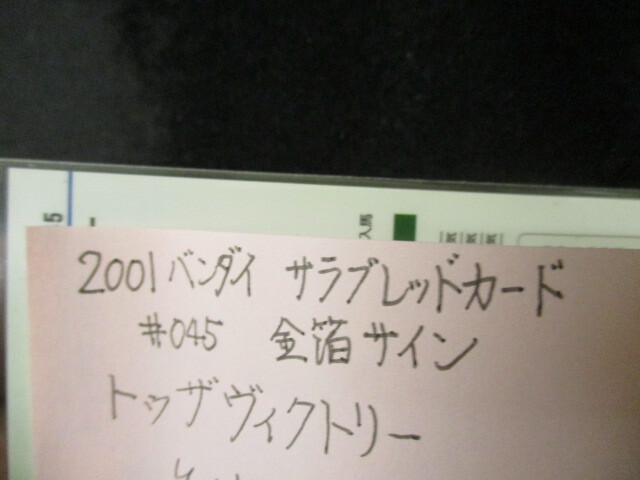 2001 バンダイ サラブレッドカード
#045 金箔サイン
トゥザヴィクトリー